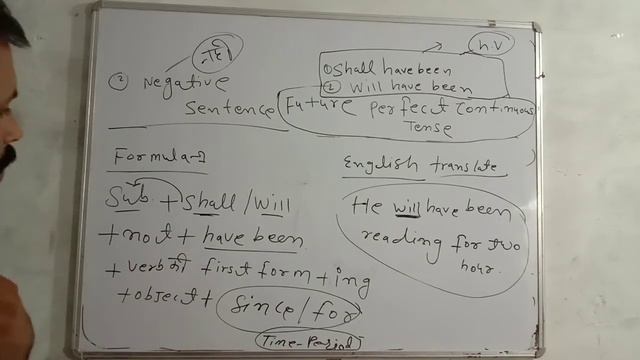 नहीं
h.V
① Shall have been
② Will have been
② Negative
Sentence
Future Perfect Continuous
Tense
Formula-1
Sub. + Shall / Will
+ not + have been
+ verb की first form + ing
+ object + Since / for
Time-Period
English translate
He will have been
reading for two
hour.